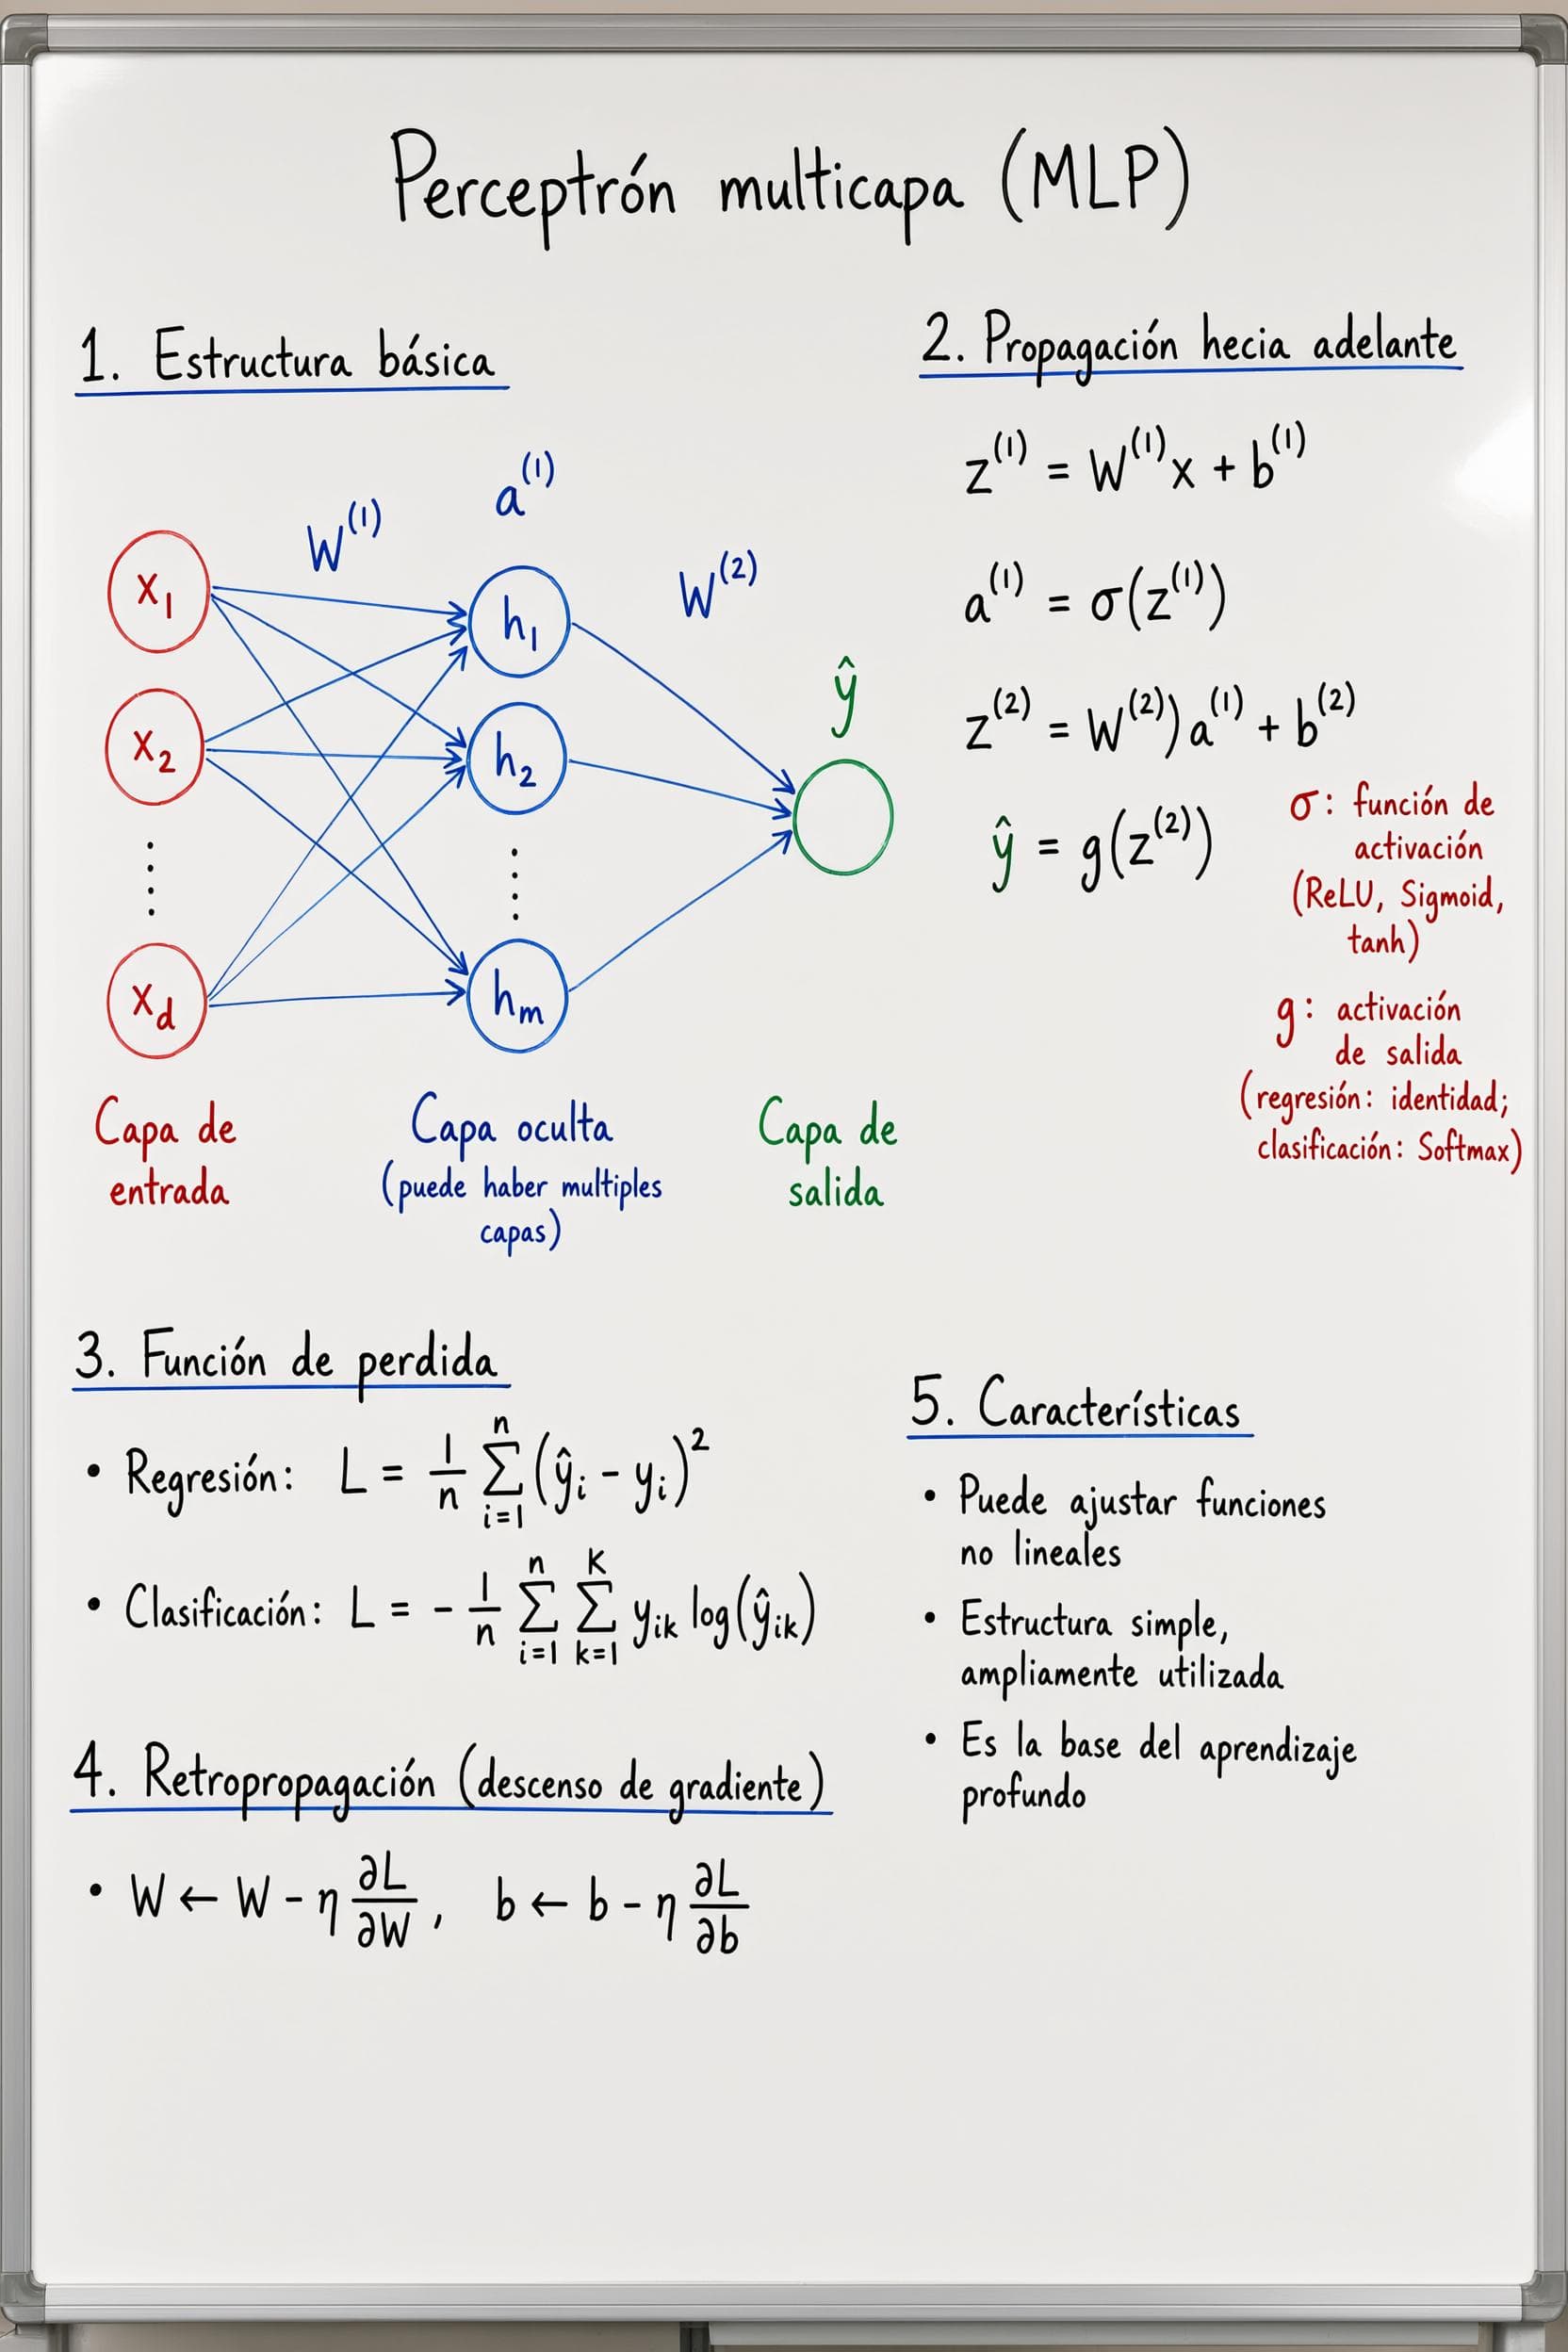 Perceptrón multicapa (MLP)
1. Estructura básica
W^(1)
a^(1)
W^(2)
x_1
x_2
⋮
x_d
h_1
h_2
⋮
h_m
ŷ
Capa de
entrada
Capa oculta
(puede haber multiples
capas)
Capa de
salida
2. Propagación hecia adelante
z^(1) = W^(1)x + b^(1)
a^(1) = σ(z^(1))
z^(2) = W^(2))a^(1) + b^(2)
ŷ = g(z^(2))
σ: función de
activación
(ReLU, Sigmoid,
tanh)
g: activación
de salida
(regresión: identidad;
clasificación: Softmax)
3. Función de perdida
• Regresión: L = 1/n ∑_{i=1}^{n} (ŷ_i - y_i)^2
• Clasificación: L = - 1/n ∑_{i=1}^{n} ∑_{k=1}^{K} y_ik log(ŷ_ik)
4. Retropropagación (descenso de gradiente)
• W ← W - η ∂L/∂W, b ← b - η ∂L/∂b
5. Características
• Puede ajustar funciones
no lineales
• Estructura simple,
ampliamente utilizada
• Es la base del aprendizaje
profundo